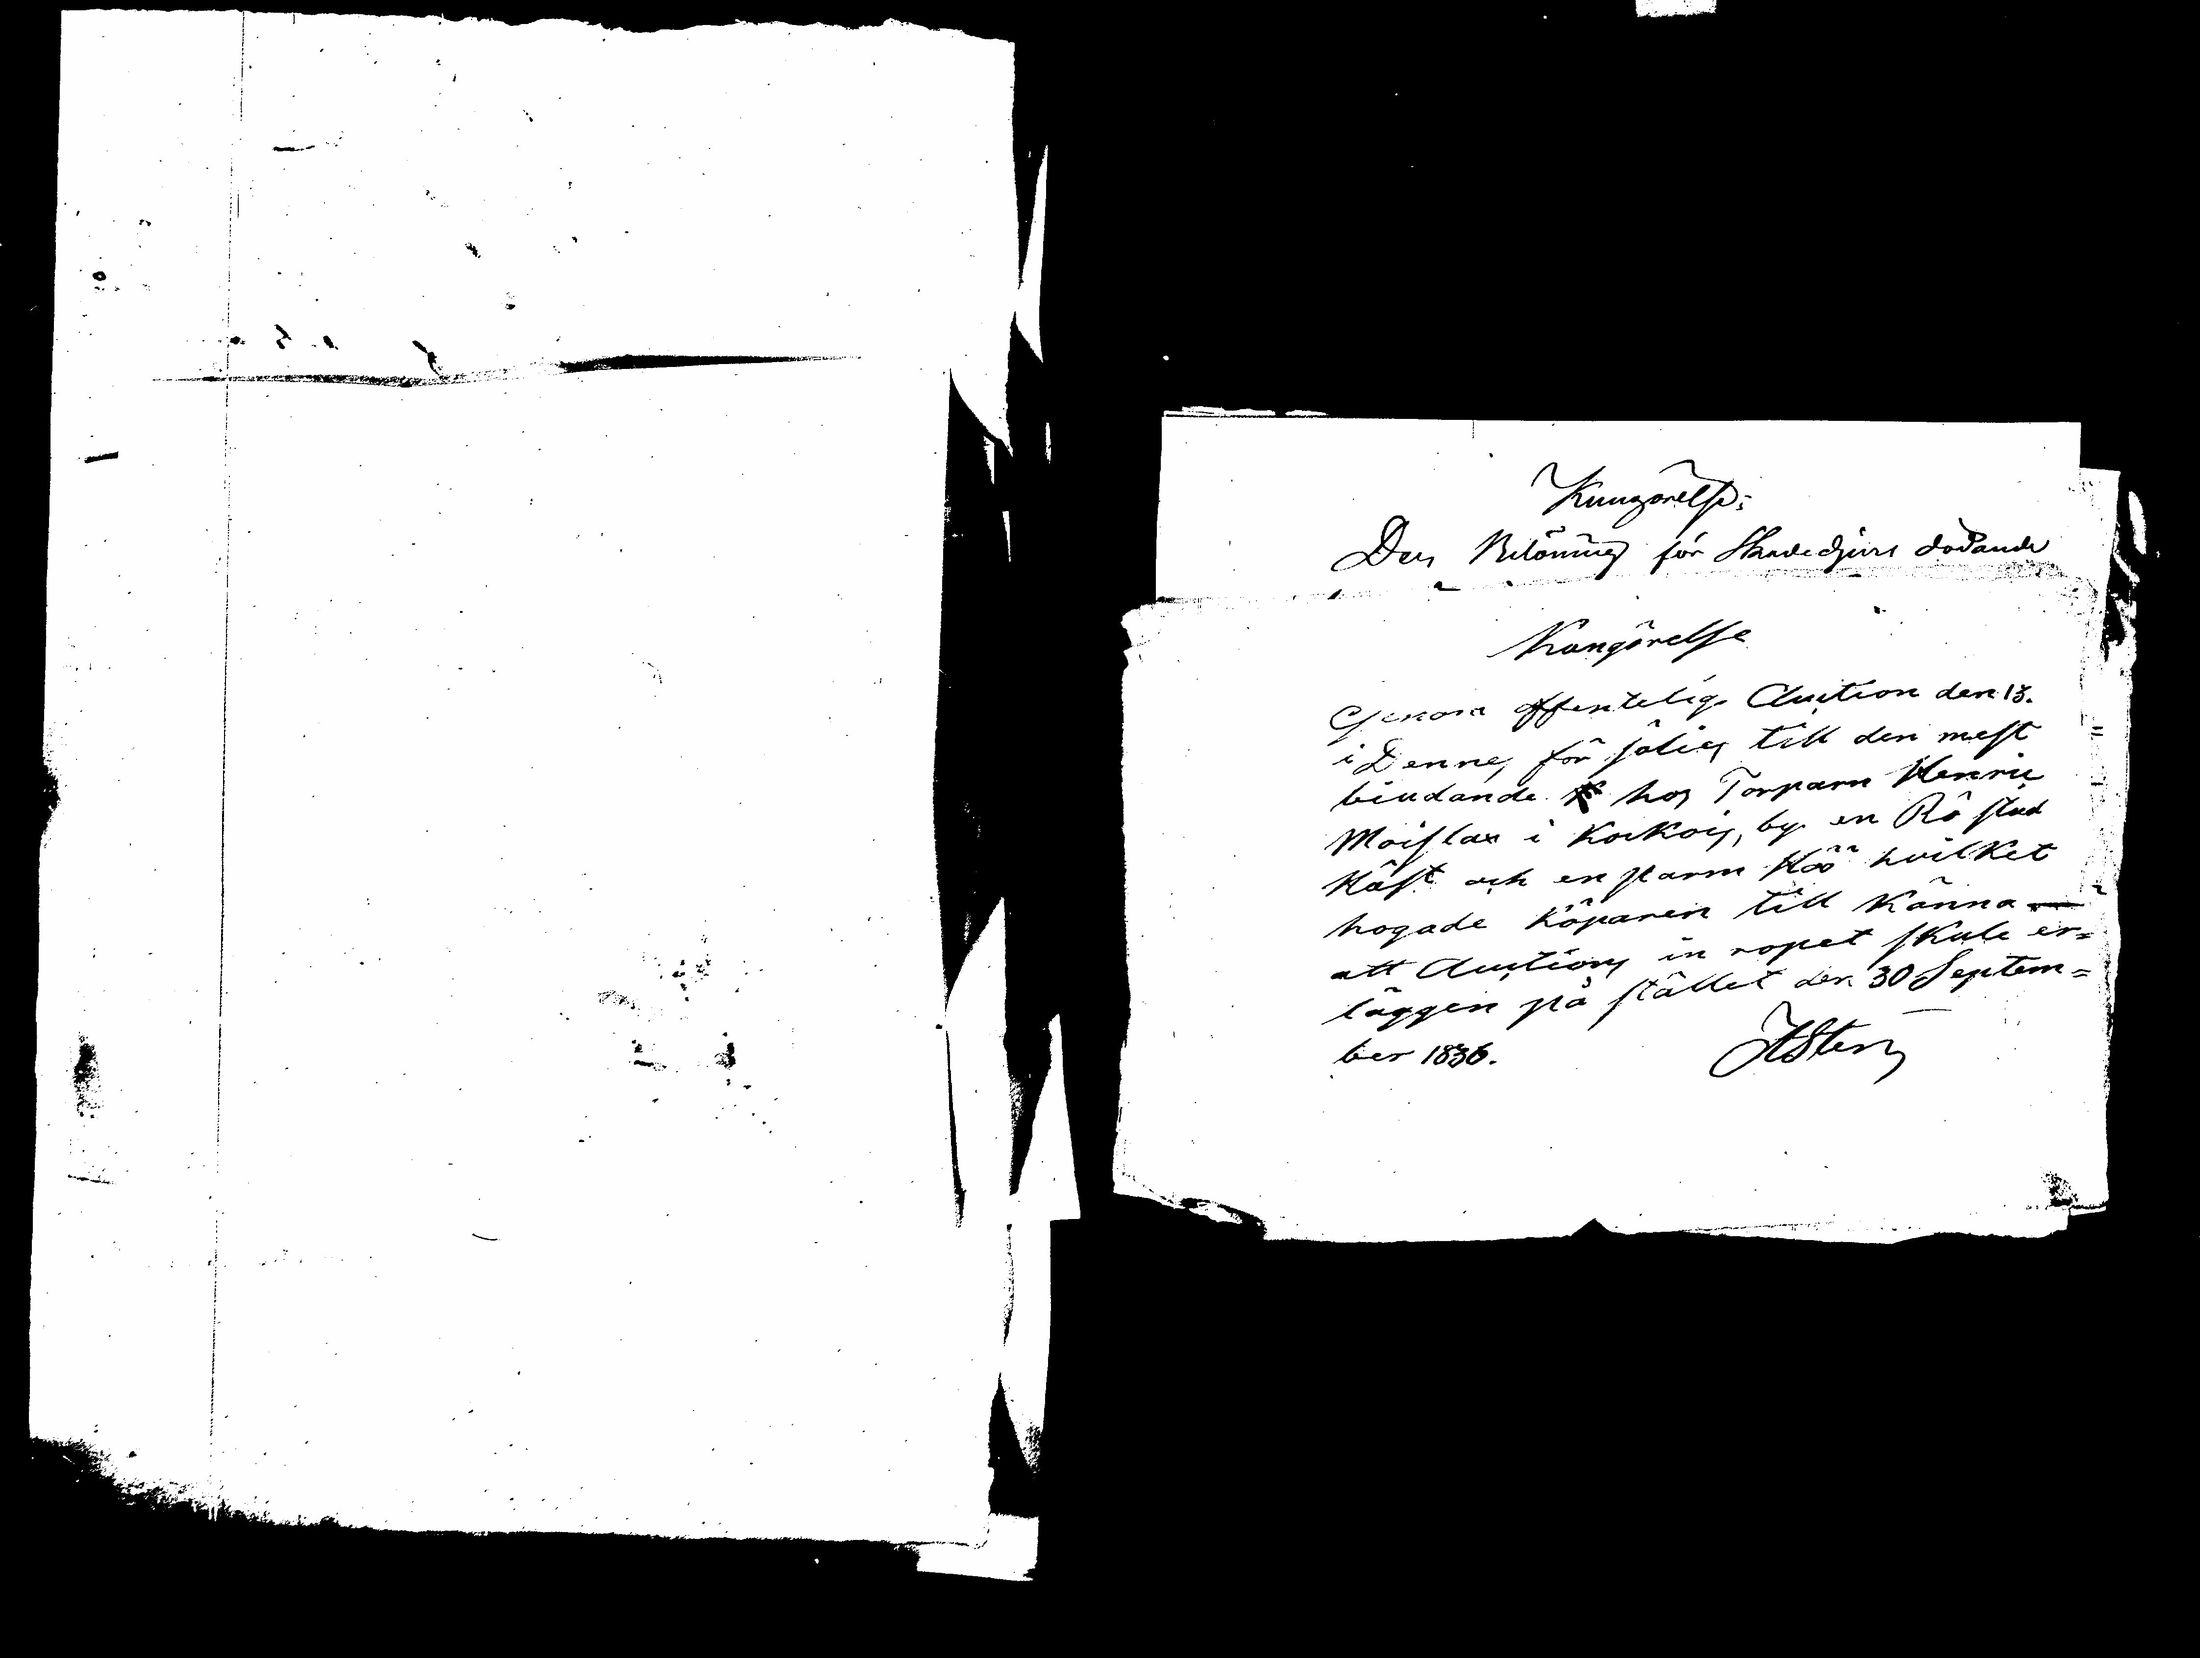 Kungörelse:
Den Belöning för Skadedjurs dödande
Kungörelse
Genom offentelig Auction den 13.
i Denne, för sälies till den mest
biudande hos Torparn Henric
Moislax i Korkois, by en Rö stud
Häst och en parm Höö hvilket
hogade Köparen till Känna
att Auctions in ropet skule er=
läggen på stället den 30 Septem=
ber 1836.
HSten